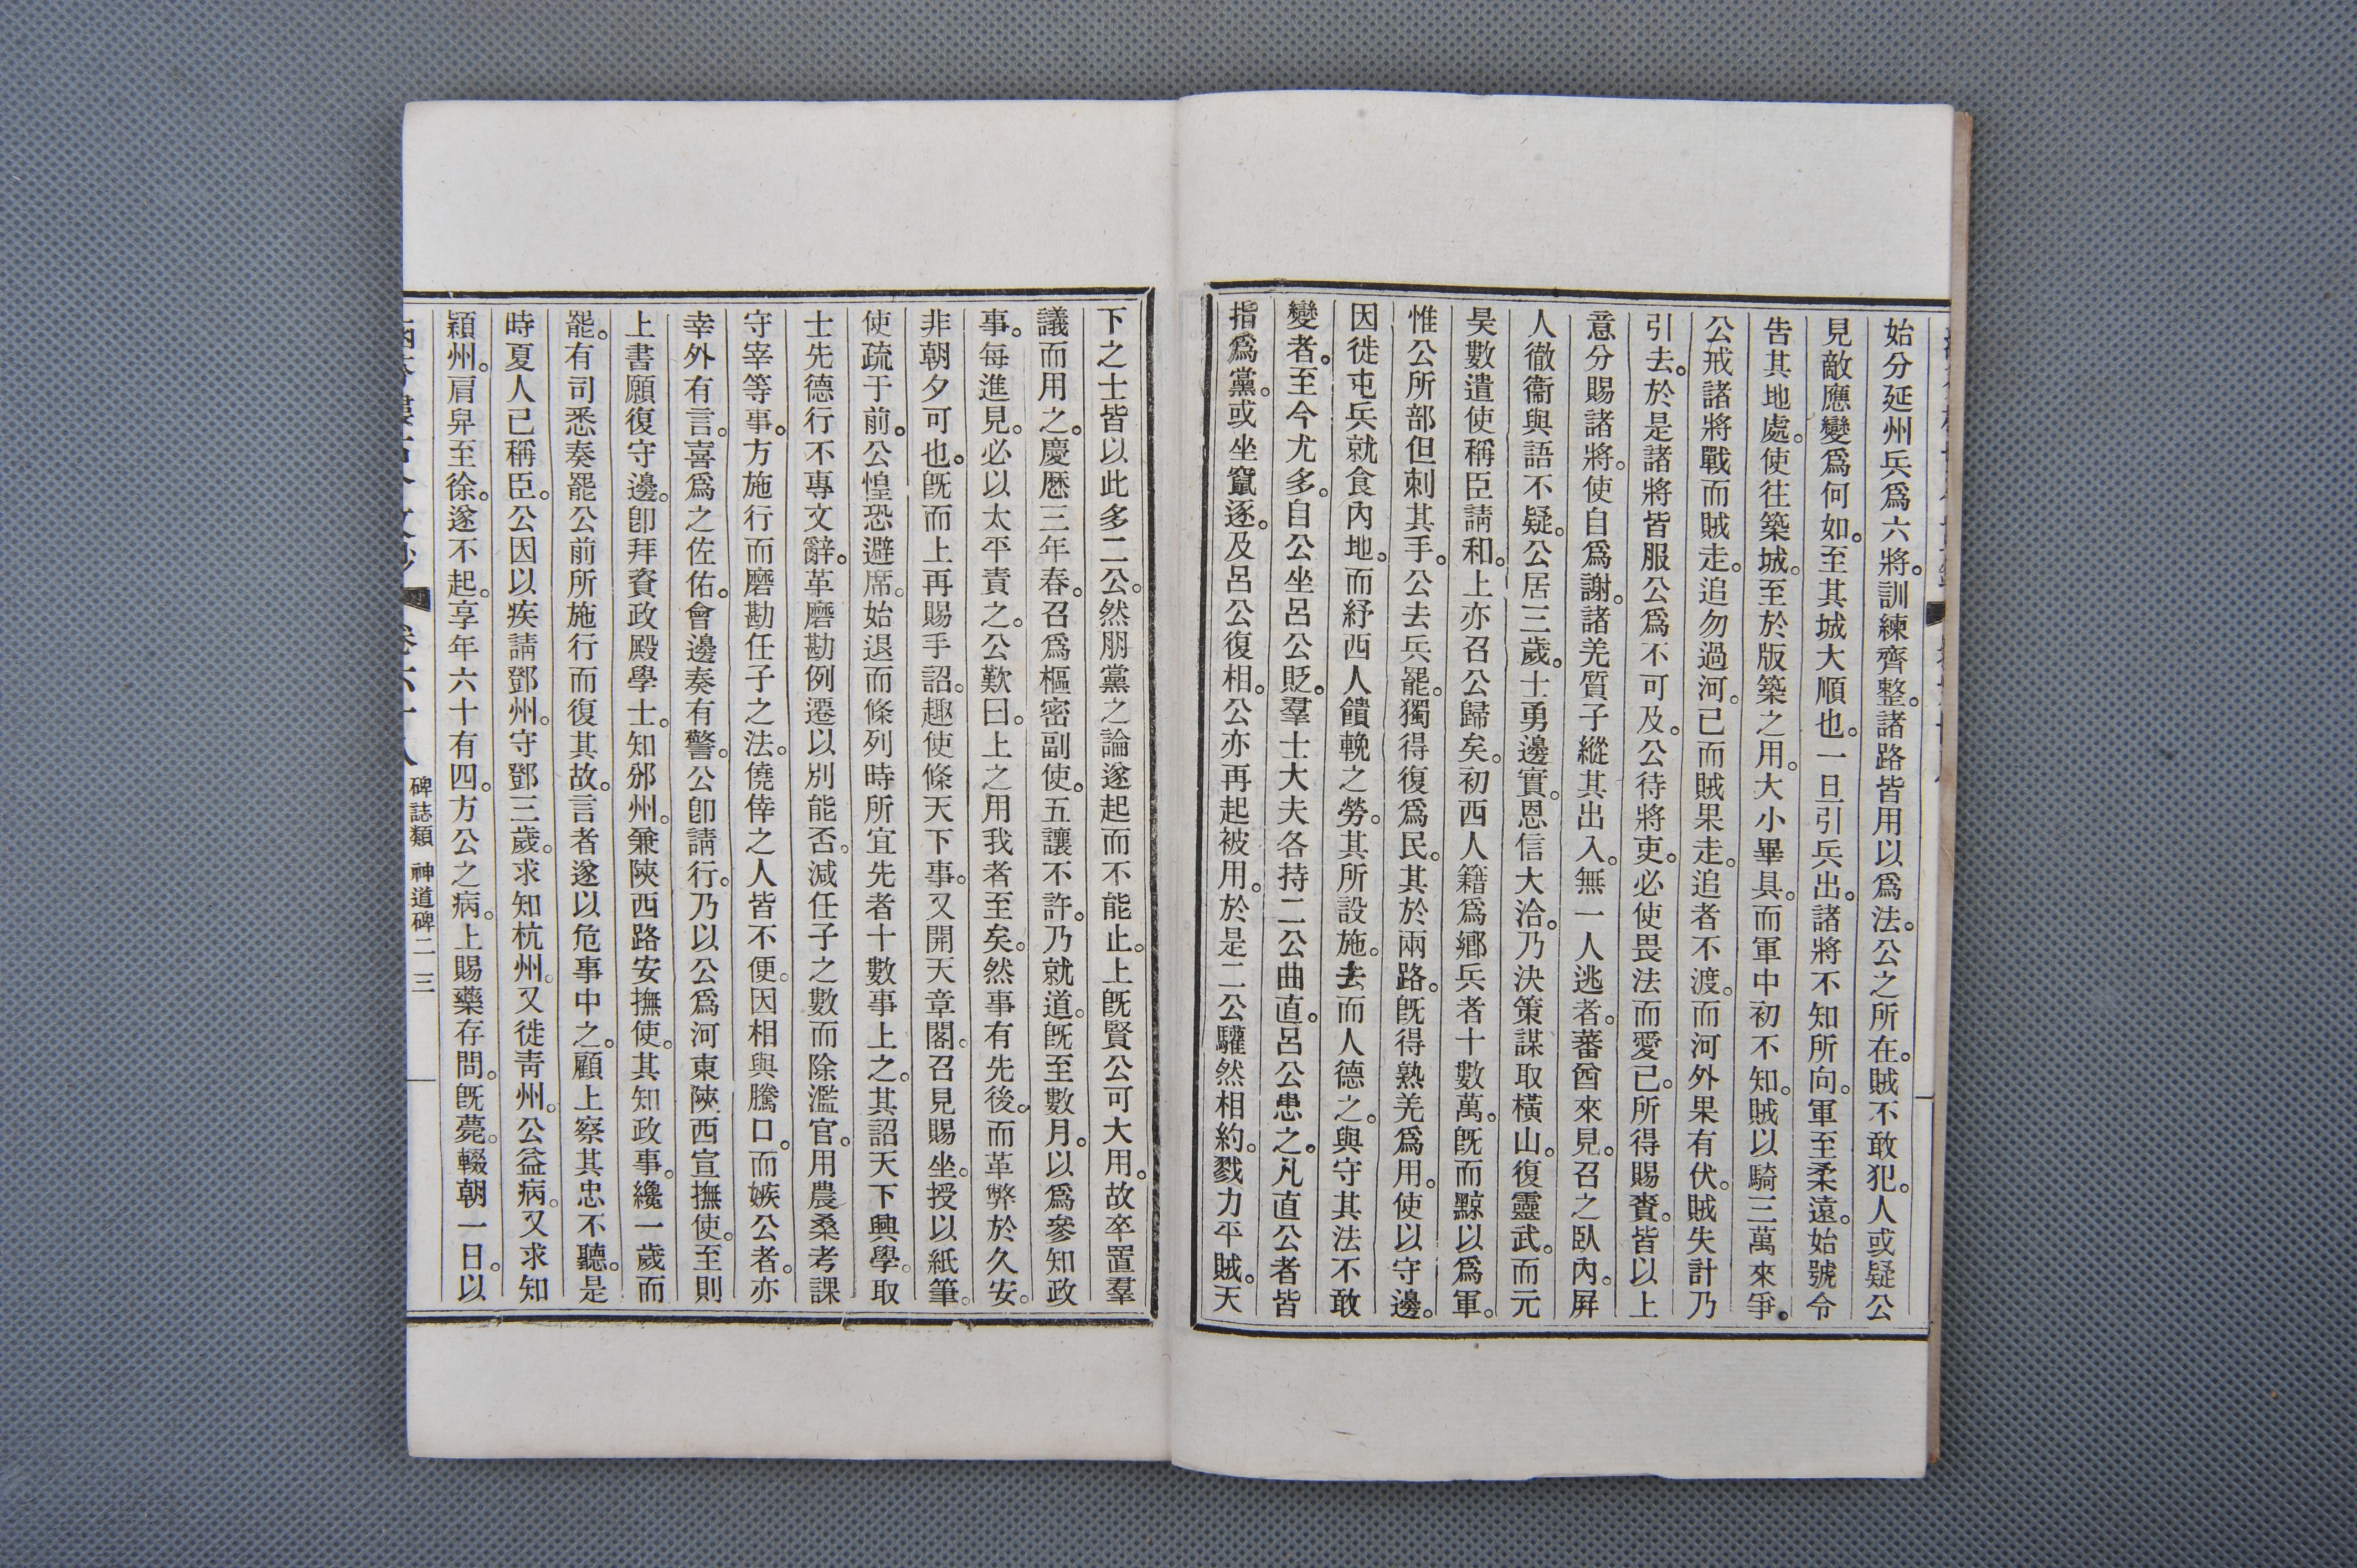 始分延州兵爲六將。訓練齊整。諸路皆用以爲法。公之所在。賊不敢犯。人或疑公
見敵應變爲何如。至其城大順也。一旦引兵出。諸將不知所向。軍至柔遠。始號令
告其地處。使往築城。至於版築之用。大小畢具。而軍中初不知。賊以騎三萬來爭。
公戒諸將戰而賊走。追勿過河。已而賊果走。追者不渡。而河外果有伏。賊失計乃
引去。於是諸將皆服公爲不可及。公待將吏。必使畏法而愛己。所得賜賚。皆以上
意分賜諸將。使自爲謝。諸羌質子縱其出入。無一人逃者。蕃酋來見。召之臥內。屏
人徹衞與語不疑。公居三歲。士勇邊實。恩信大洽。乃決策謀取橫山。復靈武。而元
昊數遣使稱臣請和。上亦召公歸矣。初西人籍爲鄉兵者十數萬。旣而黥以爲軍。
惟公所部但刺其手。公去兵罷。獨得復爲民。其於兩路。旣得熟羌爲用。使以守邊。
因徙屯兵就食內地。而紓西人饋輓之勞。其所設施。去而人德之。與守其法不敢
變者。至今尤多。自公坐呂公貶。羣士大夫各持二公曲直。呂公患之。凡直公者皆
指爲黨。或坐竄逐。及呂公復相。公亦再起被用。於是二公驩然相約。戮力平賊。天
下之士皆以此多二公。然朋黨之論遂起而不能止。上旣賢公可大用。故卒置羣
議而用之。慶曆三年春。召爲樞密副使。五讓不許。乃就道。旣至數月。以爲參知政
事。每進見。必以太平責之。公歎曰。上之用我者至矣。然事有先後。而革弊於久安。
非朝夕可也。旣而上再賜手詔。趣使條天下事。又開天章閣。召見賜坐。授以紙筆。
使疏于前。公惶恐避席。始退而條列時所宜先者十數事上之。其詔天下興學。取
士先德行不專文辭。革磨勘例遷以別能否。減任子之數而除濫官。用農桑考課
守宰等事。方施行而磨勘任子之法。僥倖之人皆不便。因相與騰口。而嫉公者。亦
幸外有言。喜爲之佐佑。會邊奏有警。公卽請行。乃以公爲河東陝西宣撫使。至則
上書願復守邊。卽拜資政殿學士。知邠州。兼陝西路安撫使。其知政事。纔一歲而
罷。有司悉奏罷公前所施行而復其故。言者遂以危事中之。顧上察其忠不聽。是
時夏人已稱臣。公因以疾請鄧州。守鄧三歲。求知杭州。又徙靑州。公益病。又求知
潁州。肩舁至徐。遂不起。享年六十有四。方公之病。上賜藥存問。旣薨。輟朝一日。以
碑誌類 神道碑二 三